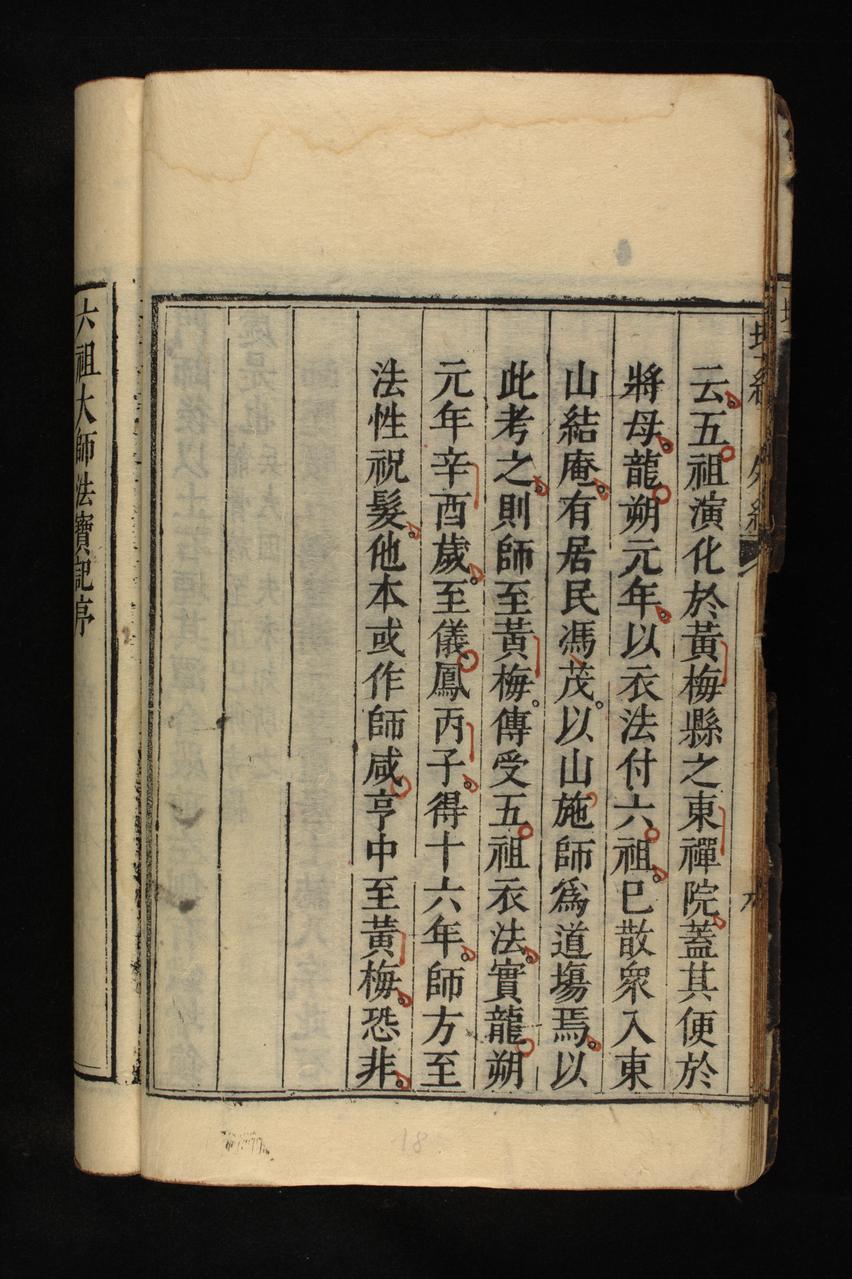 云五祖演化於黃梅縣之東禪院蓋其便於
將母龍朔元年以衣法付六祖巳散衆入東
山結庵有居民馮茂以山施師爲道塲焉以
此考之則師至黃梅傳受五祖衣法實龍朔
元年辛酉歲至儀鳳丙子得十六年師方至
法性祝髮他本或作師咸亨中至黃梅恐非
六祖大師法寶記序
18